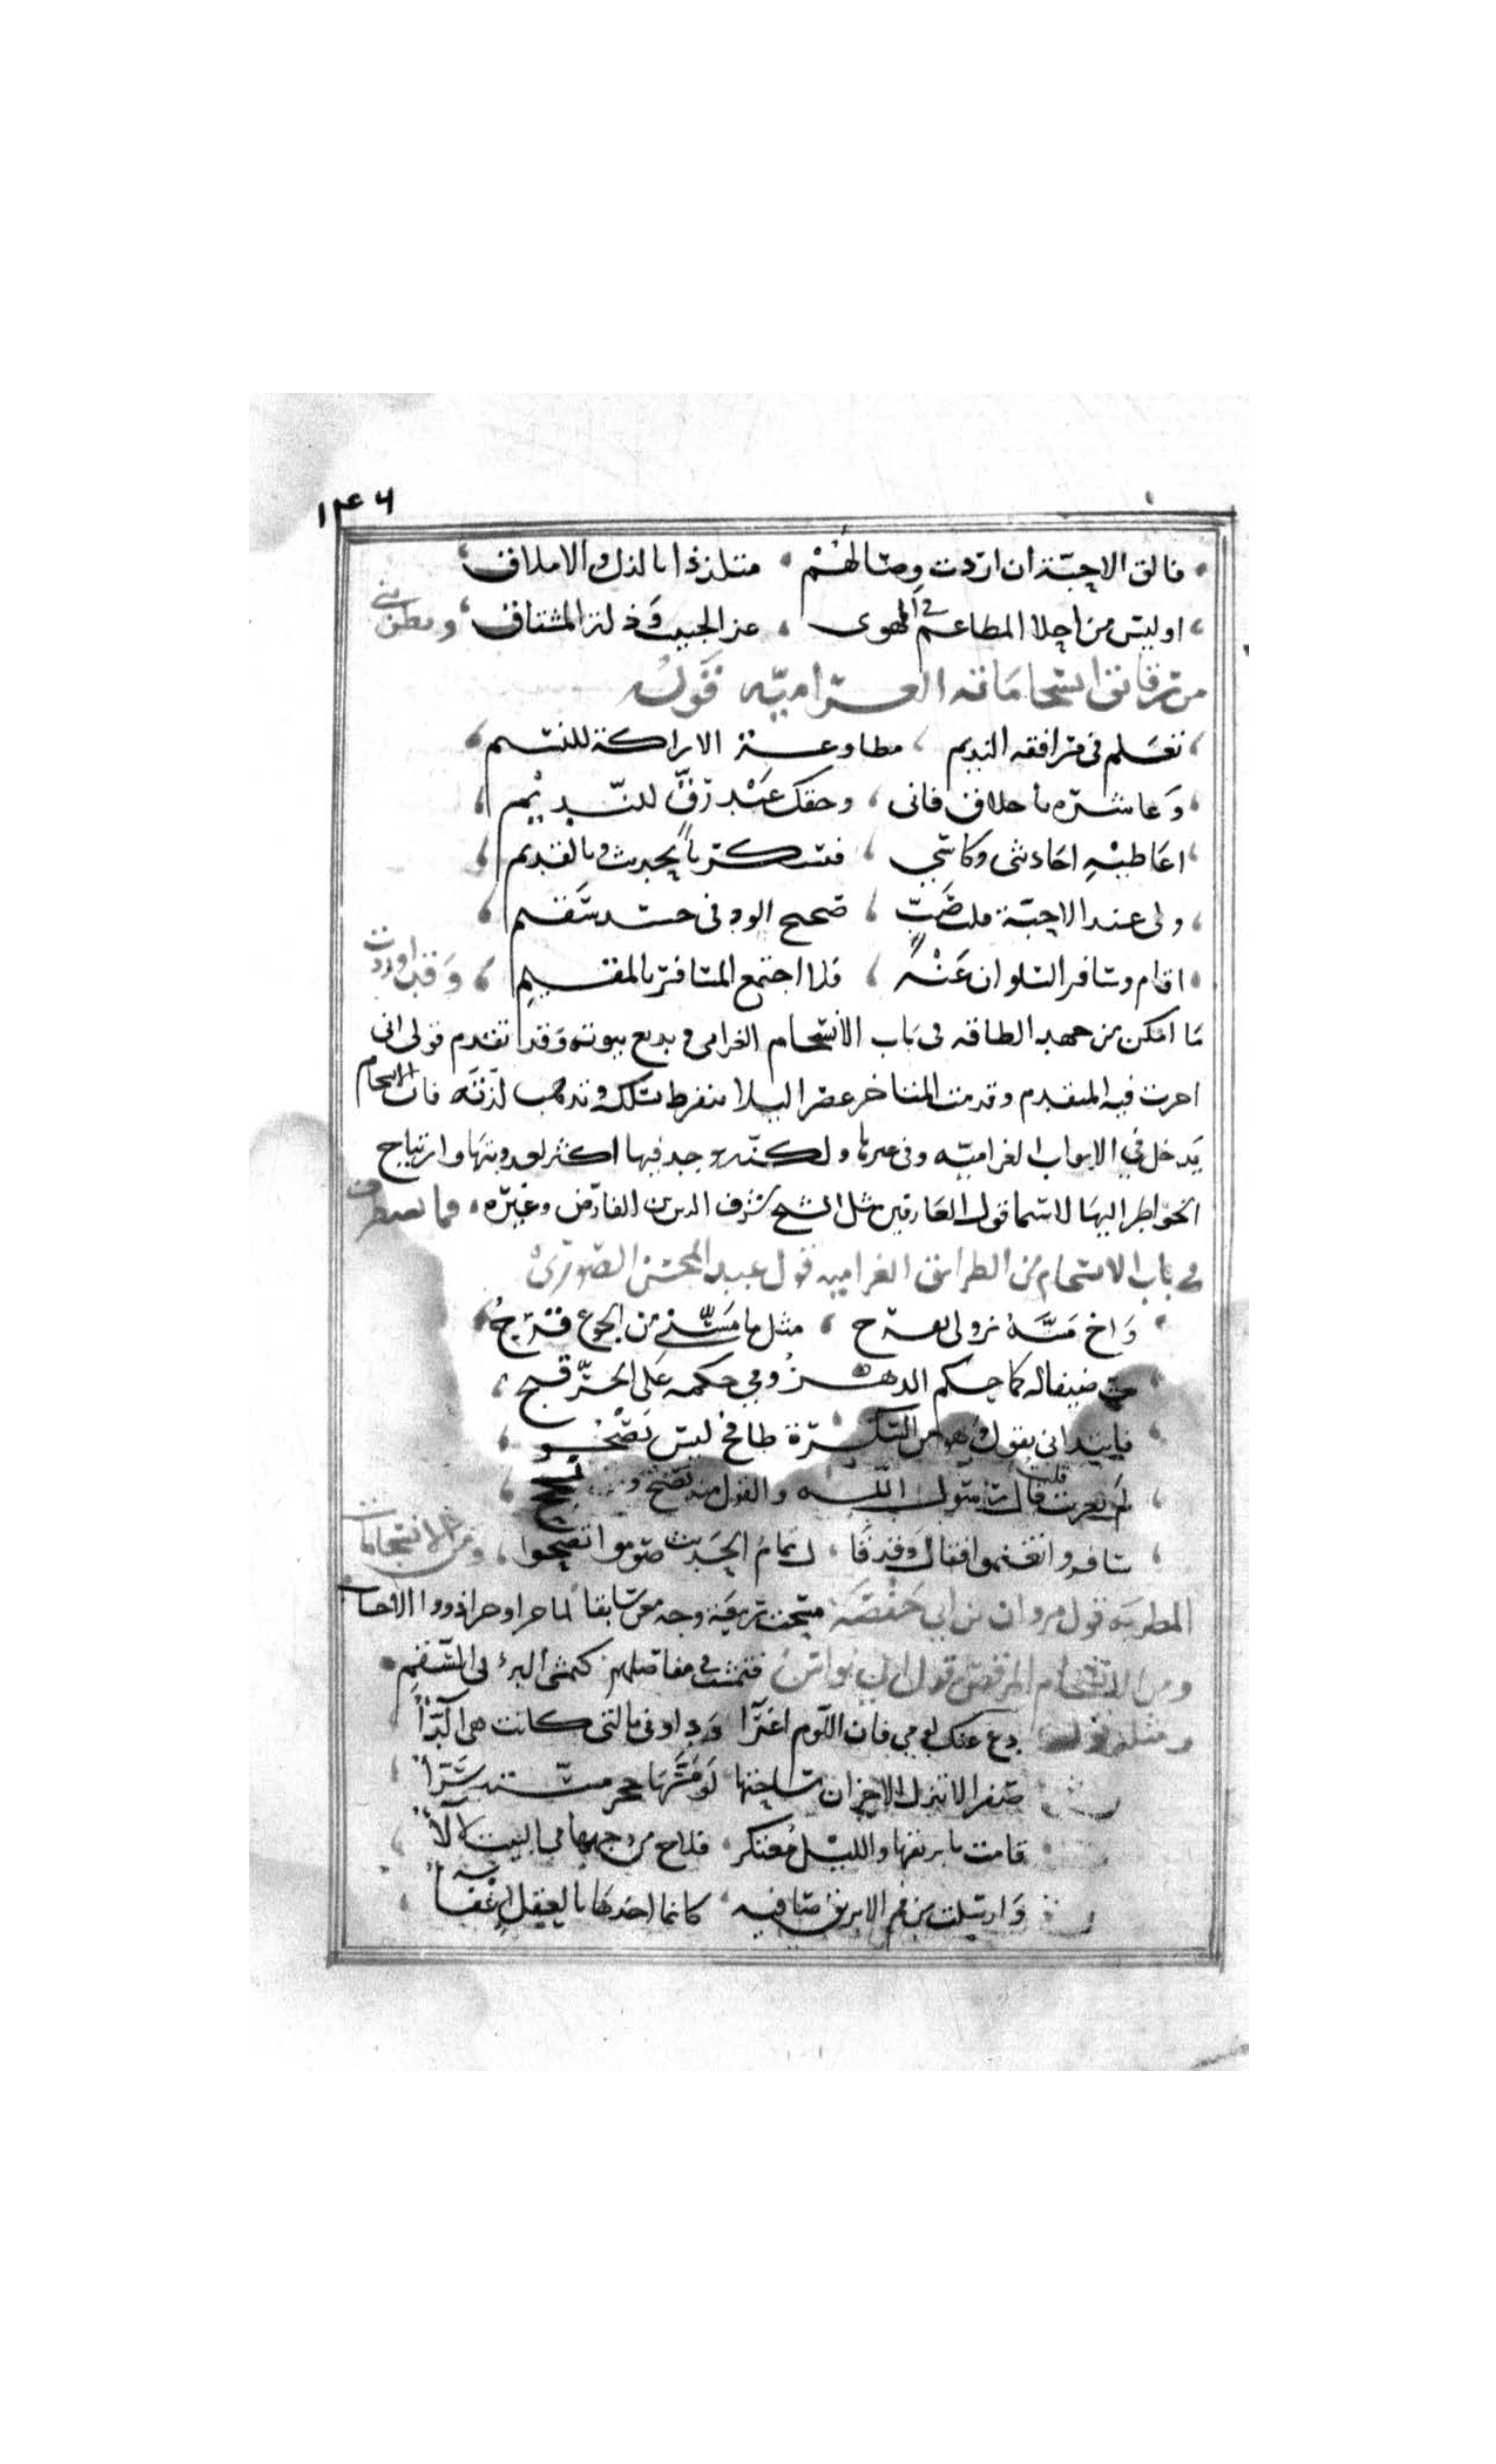 ١٣٤٦
فالق الاحبّة ان اردت وصالهُمْ متلذذا بالذل والاملاق
اوليس من احلا المطاعم في الهوى عز الحبيب وذلة المشتاق
من انسجاماته الغراميّه قوله
تعلم في مرافقه النديم مطاوعة الاراكة للنسيم
وَعاشره باخلاق فانى وحقك عَبْد رقٍّ للنّديم
اعاطيْهِ احادثى وكاسي فيسكر بالحديث وبالقديم
ولى عند الاحبّة قلب صَبٍّ صحيح الود فى جسد سقيم
اقام وسافر السلوان عَنْهُ فلا اجتمع المسافر بالمقيم وقد اوردت
مَا امكن من جهد الطاقه فى باب الانسجام الغرامى و بديع بيوته وقد تقدم قولى انى
اخرت فيه المتقدم وقدمت المتاخر عصرا ليلا ينفرط سلكه وتذهب لذّته فان الانسجام
يَدخل في الابواب الغراميّه وفى غيرها ولكنّه وجد فيها اكثر لعذوبتها وارتياح
الخواطر اليها لاسيما قول العارفين مثل الشيخ شرف الدين بن الفارض وغيره فما
فى باب الانسجام من الطرايق الغراميه قول عبد المحسن الصّورى
وَاخ مَسَّهُ نزولى بقرح مثل ما مَسَّنى من الجوع قرح
ضيفا له كما حكم الدهر وفي حكمه على الحرّ قبح
فابتدانى يقول وهو من السكرة طافح ليس يصْحُو
لم تغربت قلت قال رسول اللّه والقول منه نصْح ونجح
سافروا تغنموا فقال وقد قا ل تمام الحَديث صوموا تصحوا ومن الانسجامات
المطربه قول مروان بن ابي حفصَة مسحت ربيعَة وجه معن سابقا لما جرا وجرا ذووا الاحساب
ومن الانسجام المرقص قول ابى نواس فتمشت فى مفاصلهم كتمشى البرء فى السّقم
ومثله قوله دع عنك لومي فان اللّوم اغراءٌ وداونى بالتى كانت هي الدّاءٌ
صفرا لا تنزل الاحزان ساحتها لَو مَسَّهَا حجر مسّته سَرّاءٌ
قامت بابريقها والليل مُعتكر فلاح من وجهها فى البيت لألاءٌ
وَارسلت من فم الابريق صافيه كانما اخذها بالعقل اغْفَاءٌ